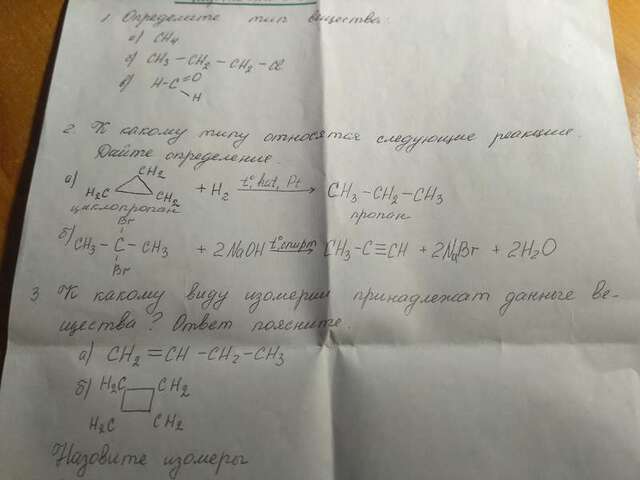 1. Определите тип вещества:
а) CH₄
б) CH₃ – CH₂ – CH₂ – Cl
в) H-C=O
H
2. К какому типу относятся следующие реакции.
Дайте определение.
CH₂
а) H₂C CH₂ + H₂ t°, kat, Pt → CH₃ – CH₂ – CH₃
циклопропан пропан
Br
б) CH₃ – C – CH₃ + 2NaOH t° спирт → CH₃ – C ≡ CH + 2NaBr + 2H₂O
Br
3 К какому виду изомерии принадлежат данные ве-
щества? Ответ поясните.
а) CH₂ = CH – CH₂ – CH₃
б) H₂C CH₂
H₂C CH₂
Назовите изомеры